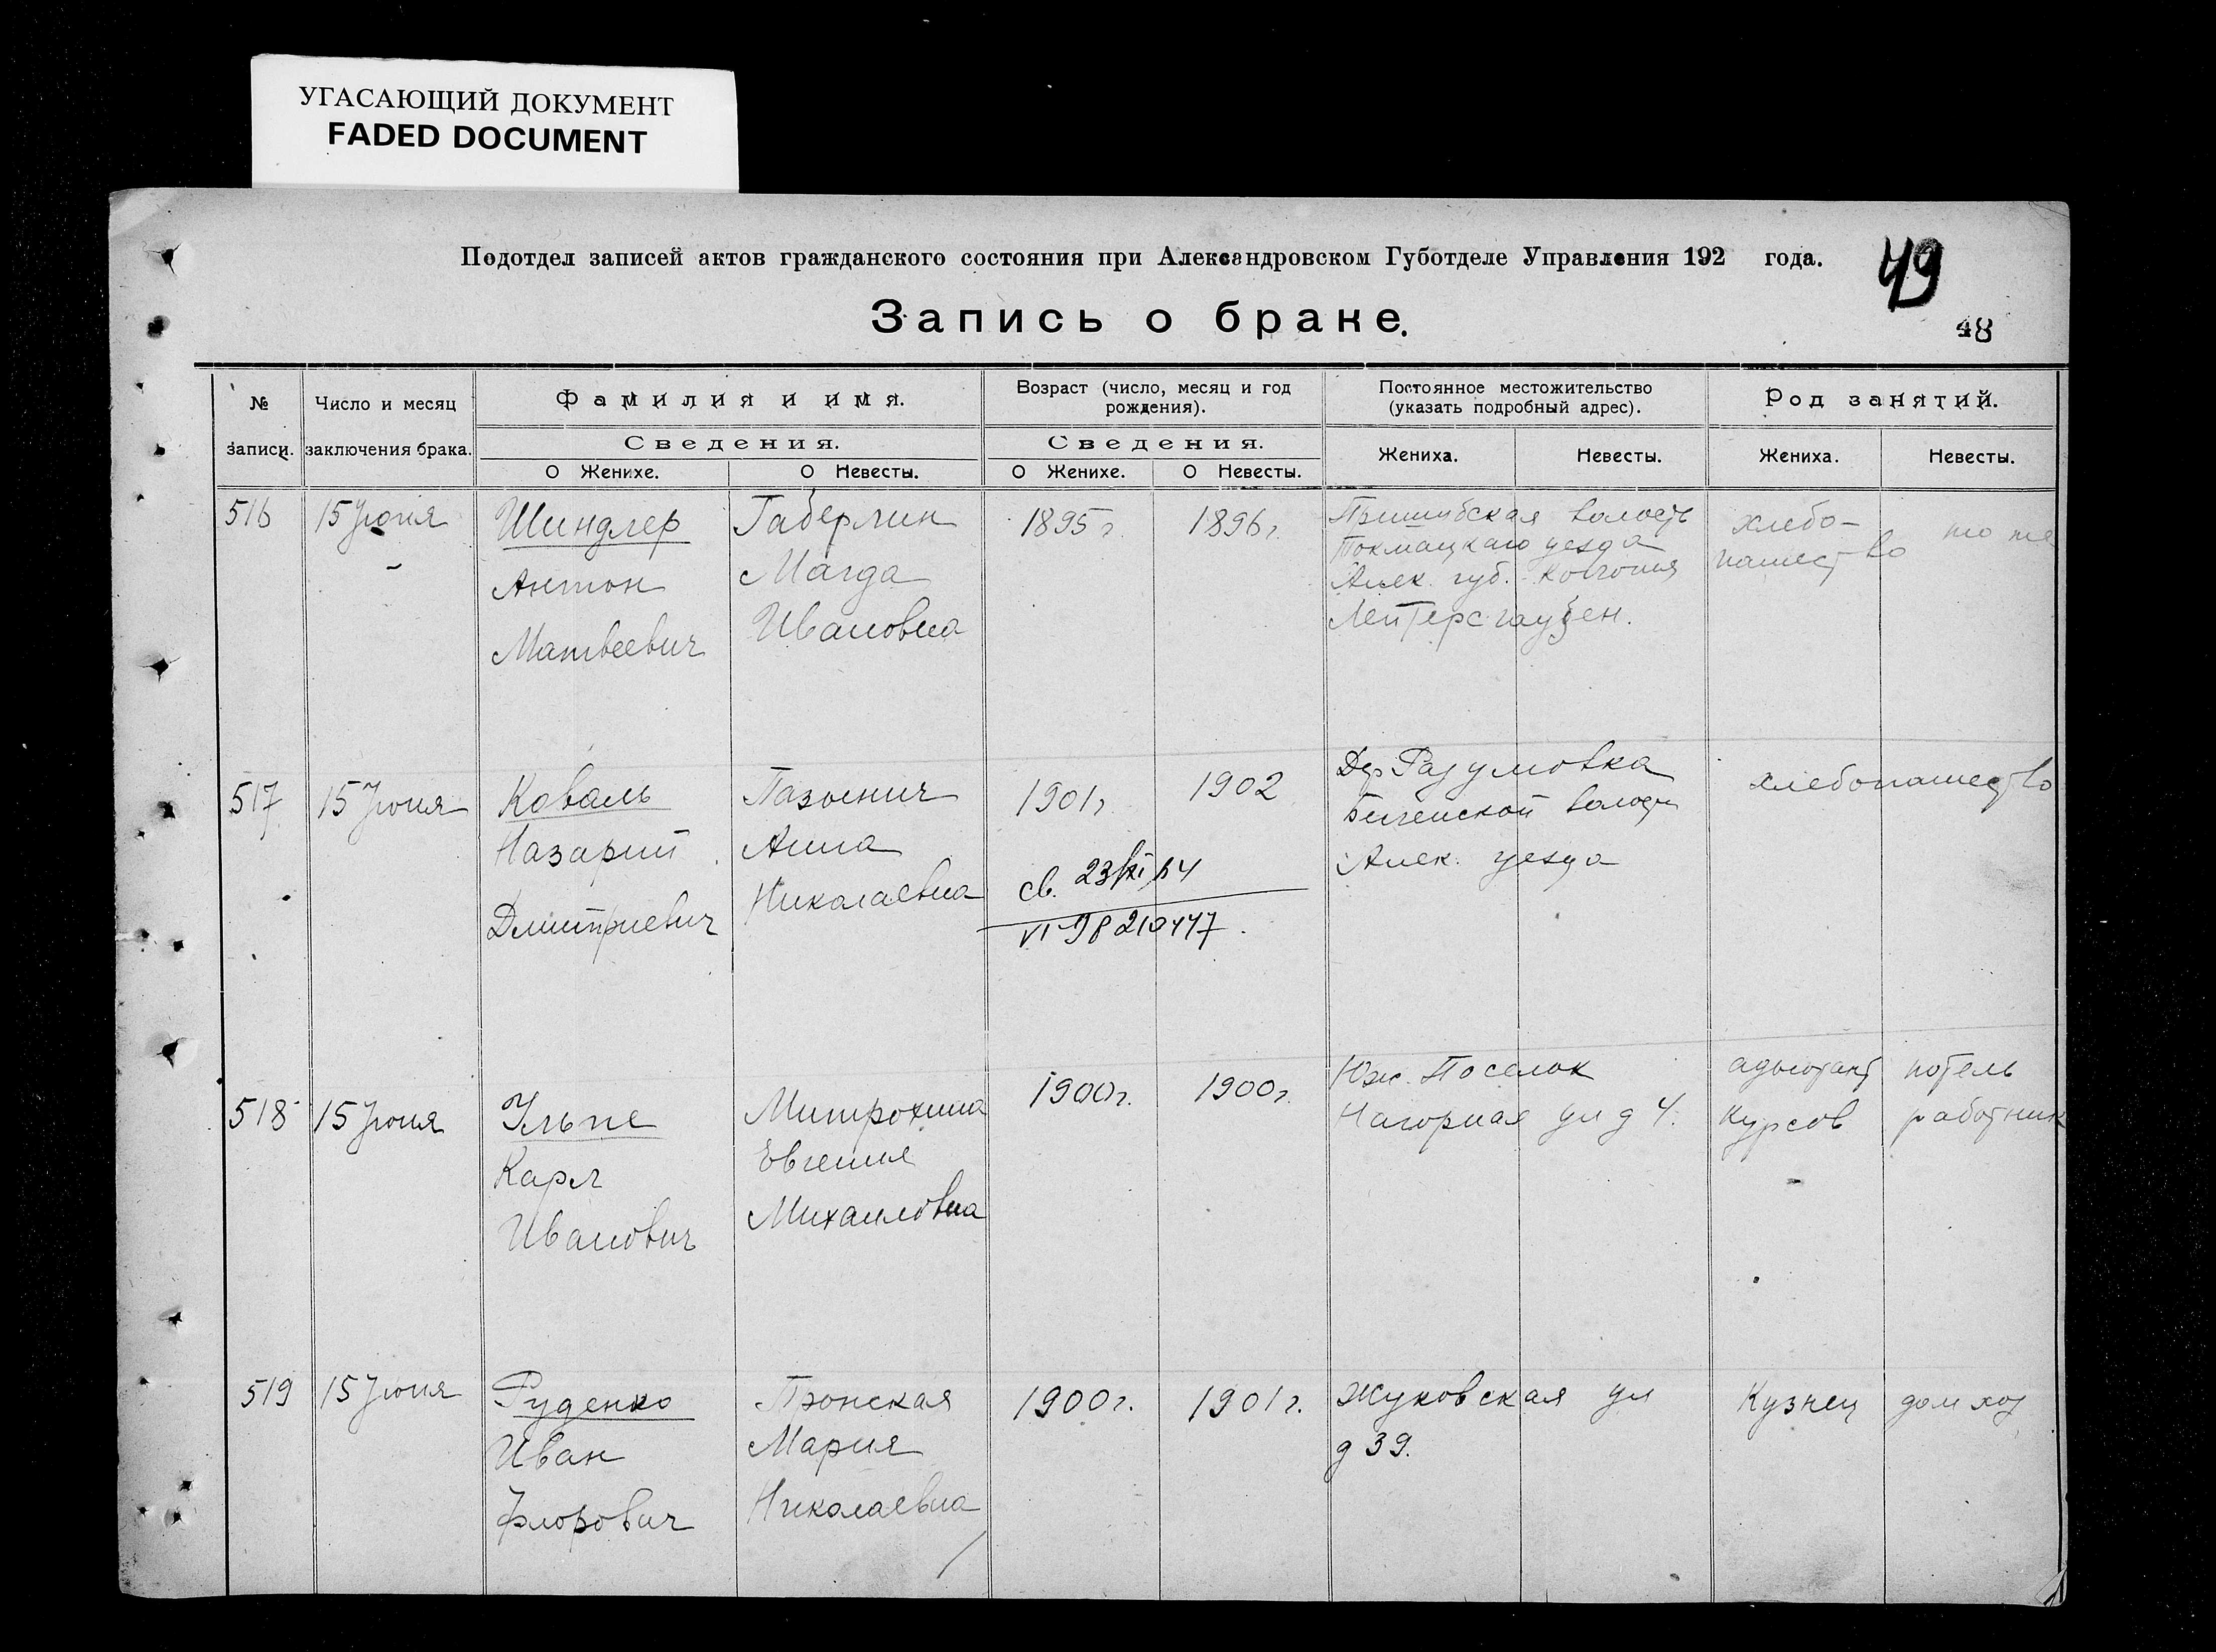 УГАСАЮЩИЙ ДОКУМЕНТ
FADED DOCUMENT
Подотдел записей актов гражданского состояния при Александровском Губотделе Управления 192 года.
49
Запись о браке.
48
№ записи.
Число и месяц заключения брака.
Фамилия и имя.
Сведения.
О Женихе.
О Невесты.
Возраст (число, месяц и год рождения).
Сведения.
О Женихе.
О Невесты.
Постоянное местожительство (указать подробный адрес).
Жениха.
Невесты.
Род занятий.
Жениха.
Невесты.
516
15 Июня
Шиндлер
Антон
Матвеевич
Габерлин
Магда
Ивановна
1895 г.
1896 г.
Пришибская волость
Токмацкаго уезда
Алек. губ. Колония
Лейтерсгаузен.
хлебо-
пашество
то же
517
15 Июня
Коваль
Назарий
Дмитриевич
Анна
Николаевна
1901 г
1902
св. 23/XI 64
VI-ЯР 210447.
Дер Разумовка
волости
Алек. уезда
хлебопашество
518
15 Июня
Карл
Иванович
Митрохина
Евгения
Михаиловна
1900 г.
1900 г.
Юж. Поселок
Нагорная ул д 4.
адьютант
курсов
работник
519
15 Июня
Руденко
Иван
Флорович
Пронская
Мария
Николаевна
1900 г.
1901 г.
Жуковская ул
д 39.
Кузнец
дом хоз